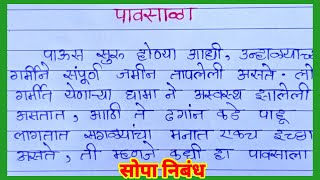 पावसाळा
पाऊस सुरू होण्या आधी, उन्हाळ्याच
गर्मीने संपूर्ण जमीन तापलेली असते. लो
गर्मीत येणाऱ्या घामा ने अस्वस्थ झालेली
असतात, आठी ते ढगांन कडे पाहू
लागतात सगळ्यांचा मनात एकच इच्छा
असते, ती म्हणजे कधी हा पावसाला
सोपा निबंध